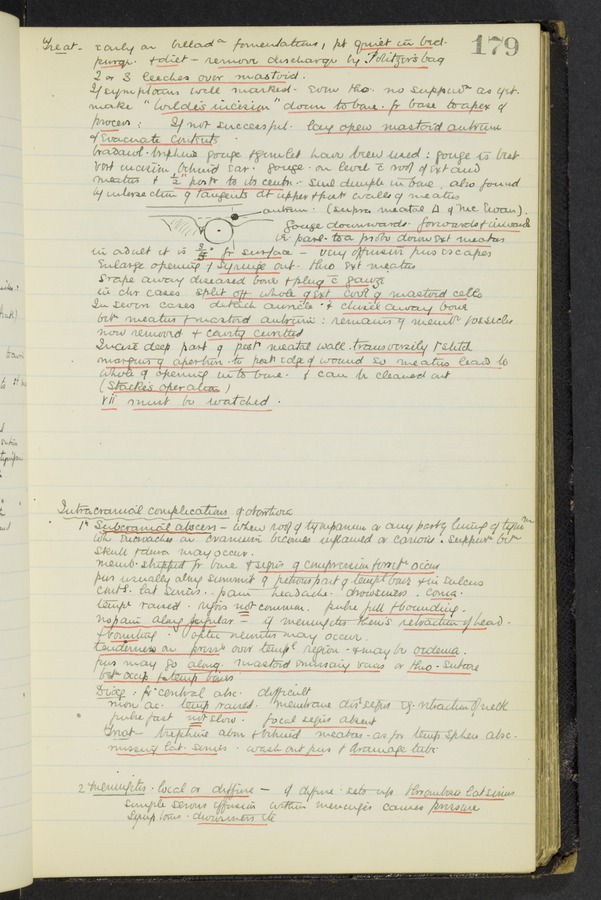 179
Treat - early on bellad^a fomentations, pt quiet in bed.
purge + diet - remove discharge by Politzer's bag
2 or 3 leeches over mastoid.
If symptoms well marked. even tho no suppur^n as yet.
make "Wilde's incision" down to bone. fr base to apex of
process: If not successful. lay open mastoid antrum
& evacuate contents.
bradawl. trephine gouge & gimlet have been used: gouge is best
Vert incision behind ear. gouge on level c̄ roof of ext aud
meatus & ½" post^r to its centre. Small dimple in bone also found
by intersection of tangents at upper & post walls of meatus
antrum. (supra meatal Δ of McEwan).
Gouge downwards forwards & inwards
ie para. to a probe down ext meatus
in adult it is fr surface - very often pus escapes
Enlarge opening & Syringe out thro ext meatus
Scrape away diseased bone & plug c̄ gauze
in chr cases split off whole of ext of mastoid cells
In severe cases detach auricle & chisel away bone
bet^n meatus & mastoid antrum: remains of memb^r & ossicles
now removed & cavity curetted
Incise deep part of post meatal wall. transversely & stitch
margins of apertion to post edge of wound so meatus leads to
whole of opening into bone. & can be cleaned out
(Stacke's operation)
VII must be watched.
Intracranial complications of otorrhoea
1^st Subcranial abscess - when roof of tympanum or any part of lining of tymp^m
wh encroaches on cranium becomes inflamed or carious. Suppur^n bet^n
skull & dura may occur.
memb. stripped fr bone & signs of compression occur
pus usually along summit of petrous part of temp^l bone & in sulcus
lat sinus. pain headache. drowsiness. coma.
temp^r raised. rigors not common. pulse full & bounding.
no pain along jugular - if meningitis there's retraction of head.
& vomiting. optic neuritis may occur.
tenderness on press^r over temp^l region & may be oedema.
pus may go along mastoid emissary veins or thro. suture
bet^n occip & temp bones
Diag: fr cerebral absc. difficult
mon ac. temp raised. membrane dis^se signs eg. retraction of neck
pulse fast not slow. focal signs absent
treat trephine abov & behind meatus - as for temp sphen absc.
missing lat sinus. wash out pus & drainage tube
2 meningitis. local or diffuse - if diffuse sets up thrombosis lat sinus
simple serous effusion within meninges causes pressure
symptoms. drowsiness etc